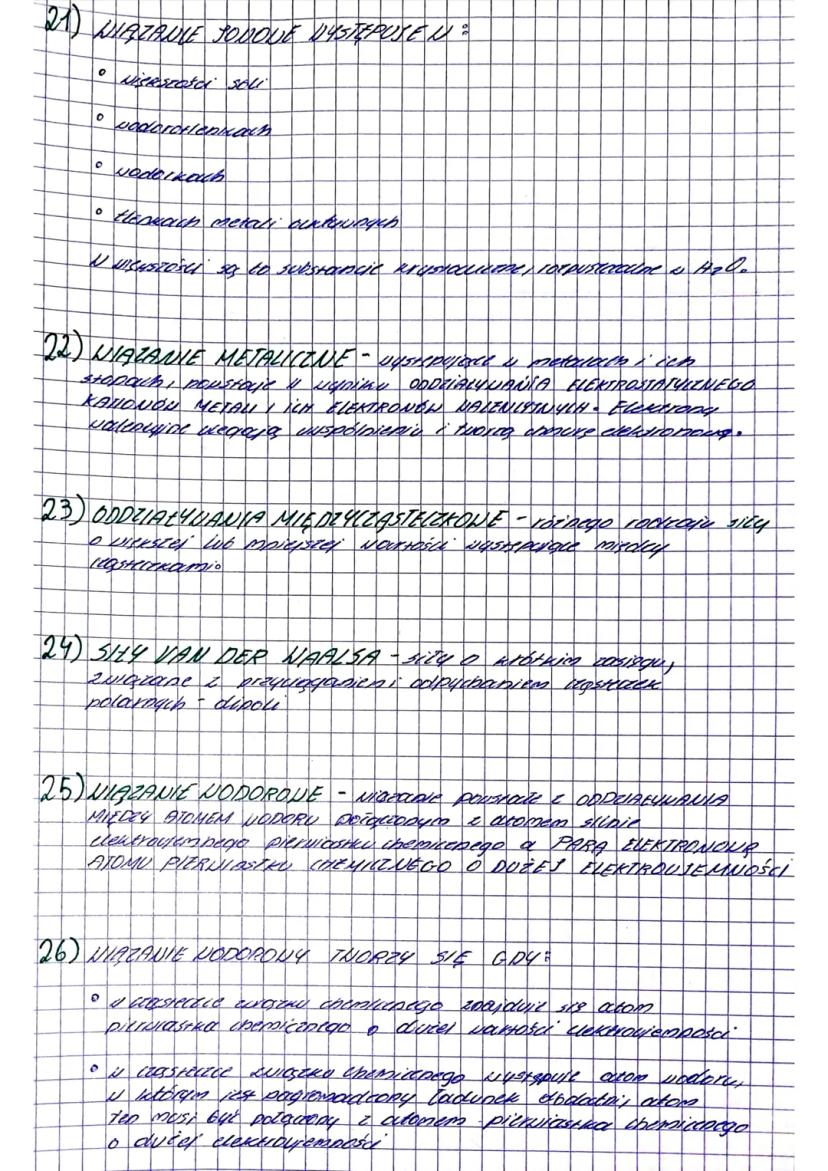 21) WIĄZANIE JONOWE WYSTĘPUJE W:
° większości soli
° wodorotlenkach
° wodorkach
° tlenkach metali aktywnych
W większości są to substancje krystaliczne, rozpuszczalne w H₂O.
22) WIĄZANIE METALICZNE - występujące w metalach i ich
stopach, powstaje w wyniku ODDZIAŁYWANIA ELEKTROSTATYCZNEGO
KATIONÓW METALI I ICH ELEKTRONÓW WALENCYJNYCH. Elektrony
walencyjne ulegają uwspólnieniu i tworzą chmurę elektronową.
23) ODDZIAŁYWANIA MIĘDZYCZĄSTECZKOWE - różnego rodzaju siły
o większej lub mniejszej wartości występujące między
cząsteczkami.
24) SIŁY VAN DER WAALSA - siły o krótkim zasięgu,
związane z przyciąganiem i odpychaniem cząsteczek
polarnych - dipoli
25) WIĄZANIE WODOROWE - wiązanie powstałe z ODDZIAŁYWANIA
MIĘDZY ATOMEM WODORU połączonym z atomem silnie
elektroujemnego pierwiastka chemicznego a PARĄ ELEKTRONOWĄ
ATOMU PIERWIASTKA CHEMICZNEGO O DUŻEJ ELEKTROUJEMNOŚCI
26) WIĄZANIE WODOROWY TWORZY SIĘ GDY:
° w cząsteczce związku chemicznego znajduje się atom
pierwiastka chemicznego o dużej wartości elektroujemności
° w cząsteczce związku chemicznego występuje atom wodoru,
w którym jest nagromadzony ładunek dodatni, atom
ten musi być połączony z atomem pierwiastka chemicznego
o dużej elektroujemności